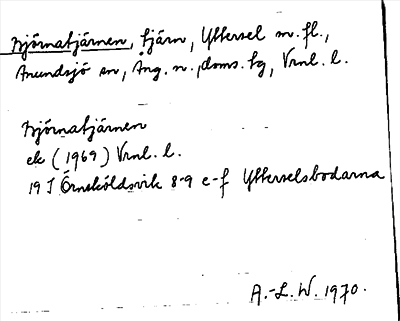 Björnatjärnen, tjärn, Yttersel m. fl.,
Anundsjö sn, Ång. n., doms. tg, Vrnl. l.
Björnatjärnen
ek (1969) Vrnl. l.
19 J Örnsköldsvik 8-9 e-f Ytterselsbodarna
A.-L. W. 1970.